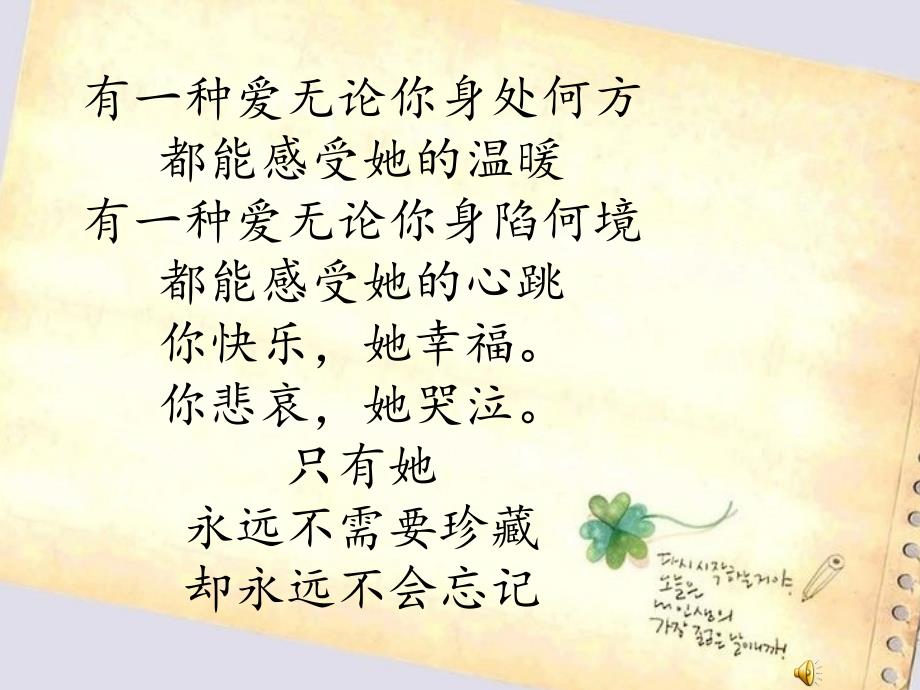 有一种爱无论你身处何方
都能感受她的温暖
有一种爱无论你身陷何境
都能感受她的心跳
你快乐，她幸福。
你悲哀，她哭泣。
只有她
永远不需要珍藏
却永远不会忘记
다시 시작하는거야.
오늘은
내 인생의
가장 젊은 날이니까!